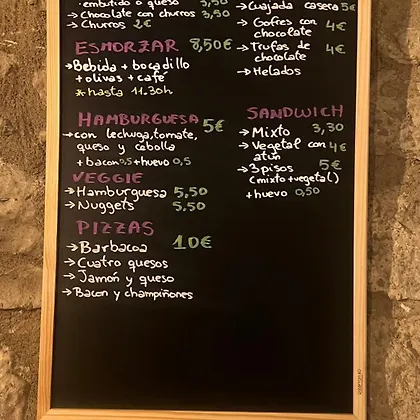 embutido o queso 3,50
→ Chocolate con churros 3,50
→ Churros 2€
ESMORZAR 8,50€
→ Bebida + bocadillo
+ olivas + café
* hasta 11.30h
HAMBURGUESA 5€
→ con lechuga, tomate,
queso y cebolla
+ bacon 0,5 + huevo 0,5
VEGGIE
→ Hamburguesa 5,50
→ Nuggets 5.50
PIZZAS
→ Barbacoa 10€
→ Cuatro quesos
→ Jamón y queso
→ Bacon y champiñones
→ Cuajada casera 5€
→ Gofres con 4€
chocolate
→ Trufas de 4€
chocolate
→ Helados
SANDWICH
→ Mixto 3,30
→ Vegetal con 4€
atún
→ 3 pisos 5€
(mixto + vegetal)
+ huevo 0,50